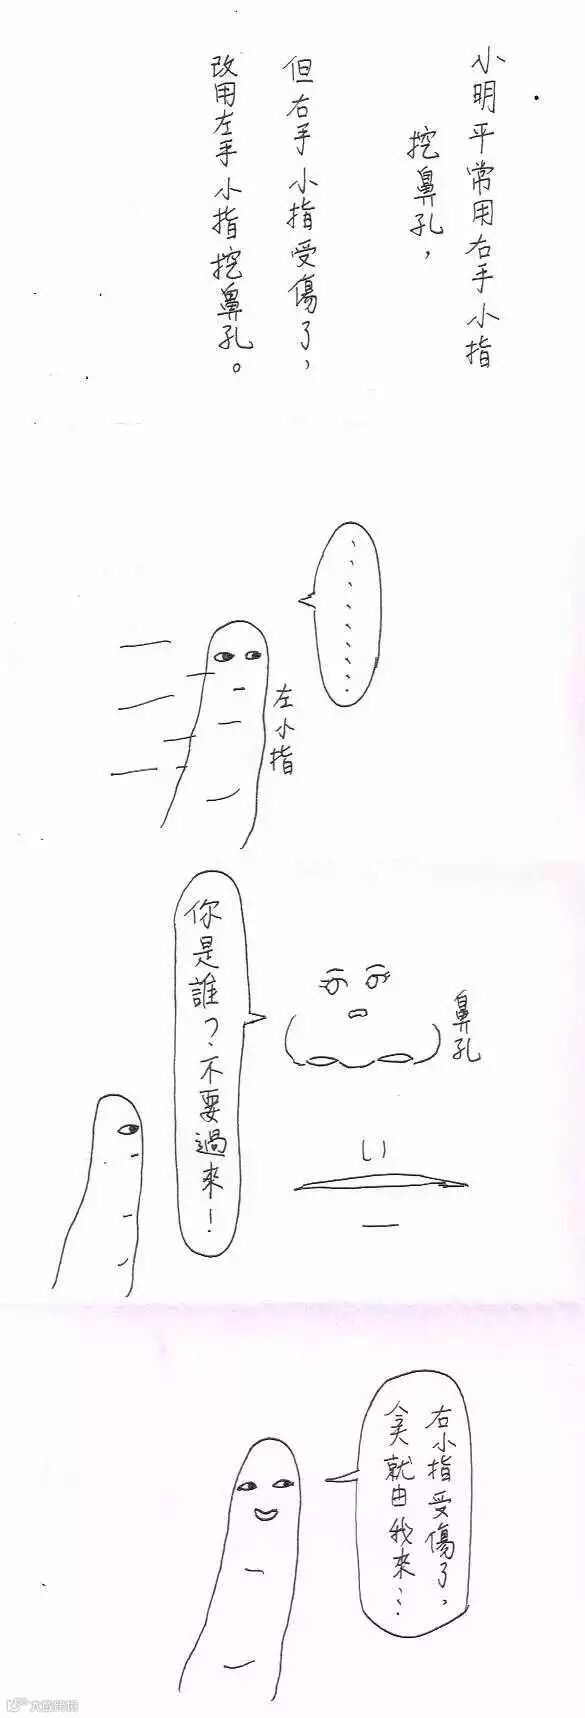 小明平常用右手小指
挖鼻孔，
但右手小指受傷了，
改用左手小指挖鼻孔。
、、、、、、、、、
左小指
你是誰？不要過來！
鼻孔
右小指受傷了，
今天就由我來…
大歐跨境